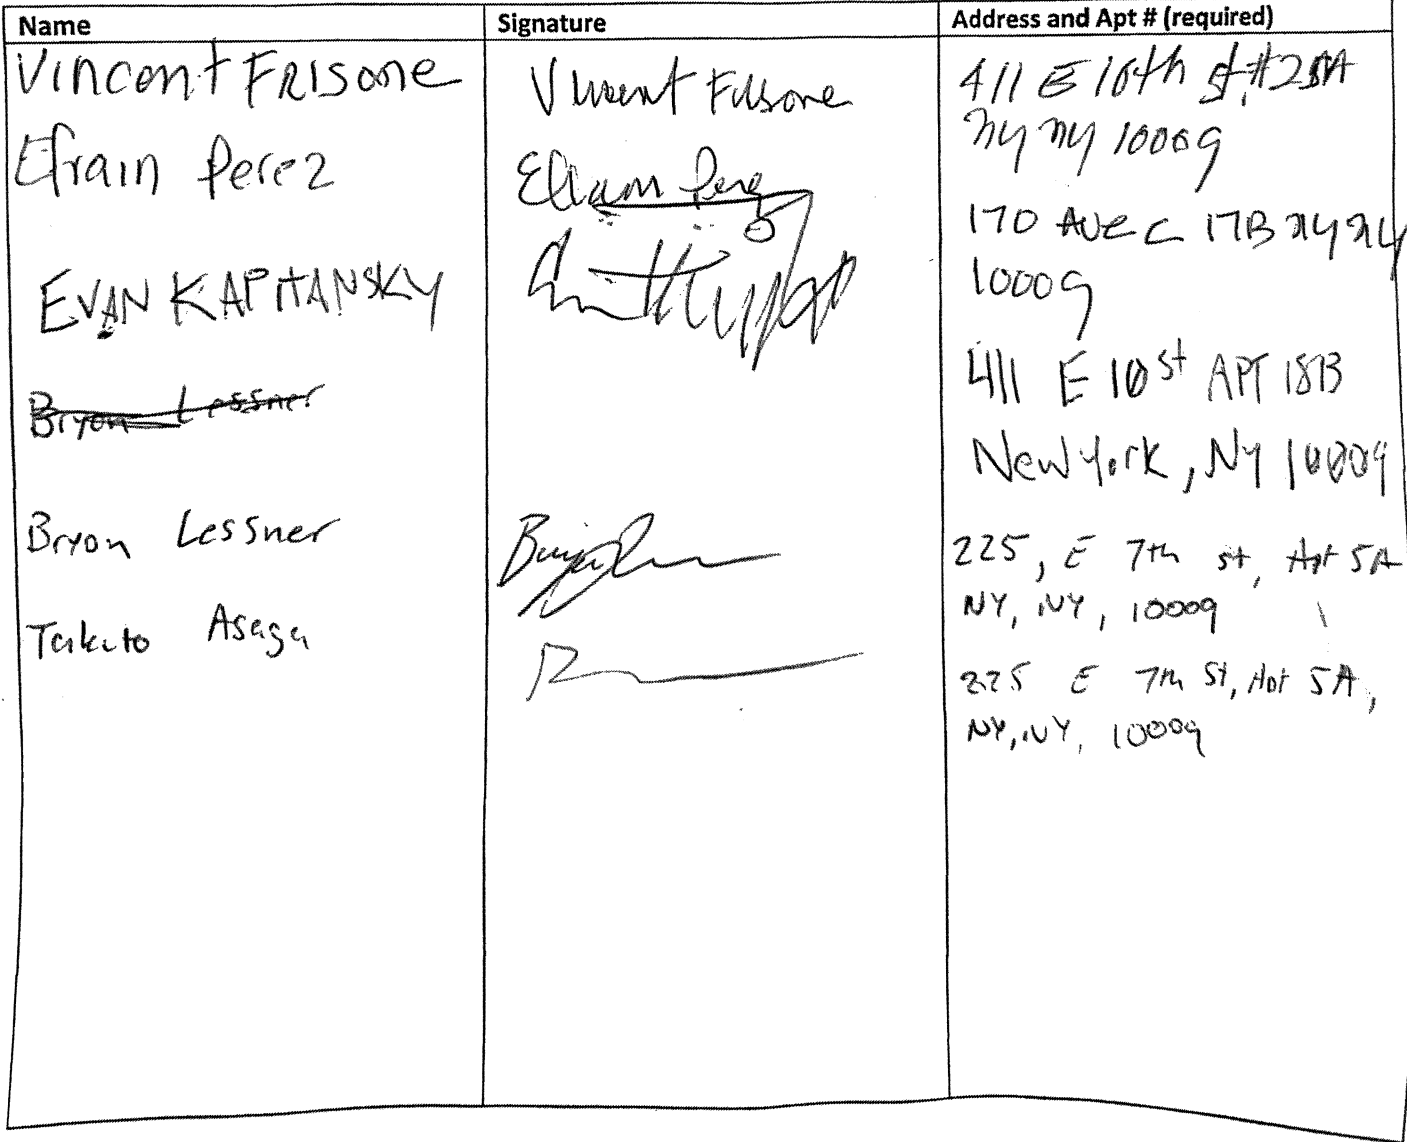 Name Signature Address and Apt # (required)
Vincent FRISONE Vincent Frisone 411 E 10th St, #25A
NY NY 10009
Efrain Perez Efrain Perez
170 Ave C 17B NY NY
10009
EVAN KAPITANSKY
411 E 10 St APT 18B
New York, NY 10009
Bryon Lessner
Bryon Lessner
225, E 7th st, Apt 5A
NY, NY, 10009
Takuto Asaga
225 E 7th St, Apt 5A,
NY, NY, 10009